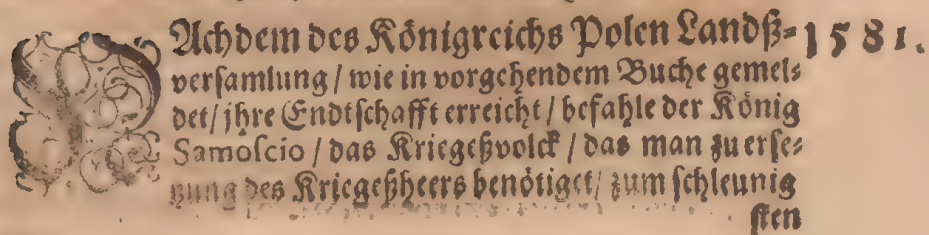 NAchdem des Königreichs Polen Landß= 1581.
versamlung / wie in vorgehendem Buche gemel=
det / jhre Endtschafft erreicht / befahle der König
Samoscio / das Kriegeßvolck / das man zu erse=
tzung des Kriegeßheers benötiget / zum schleunig
sten